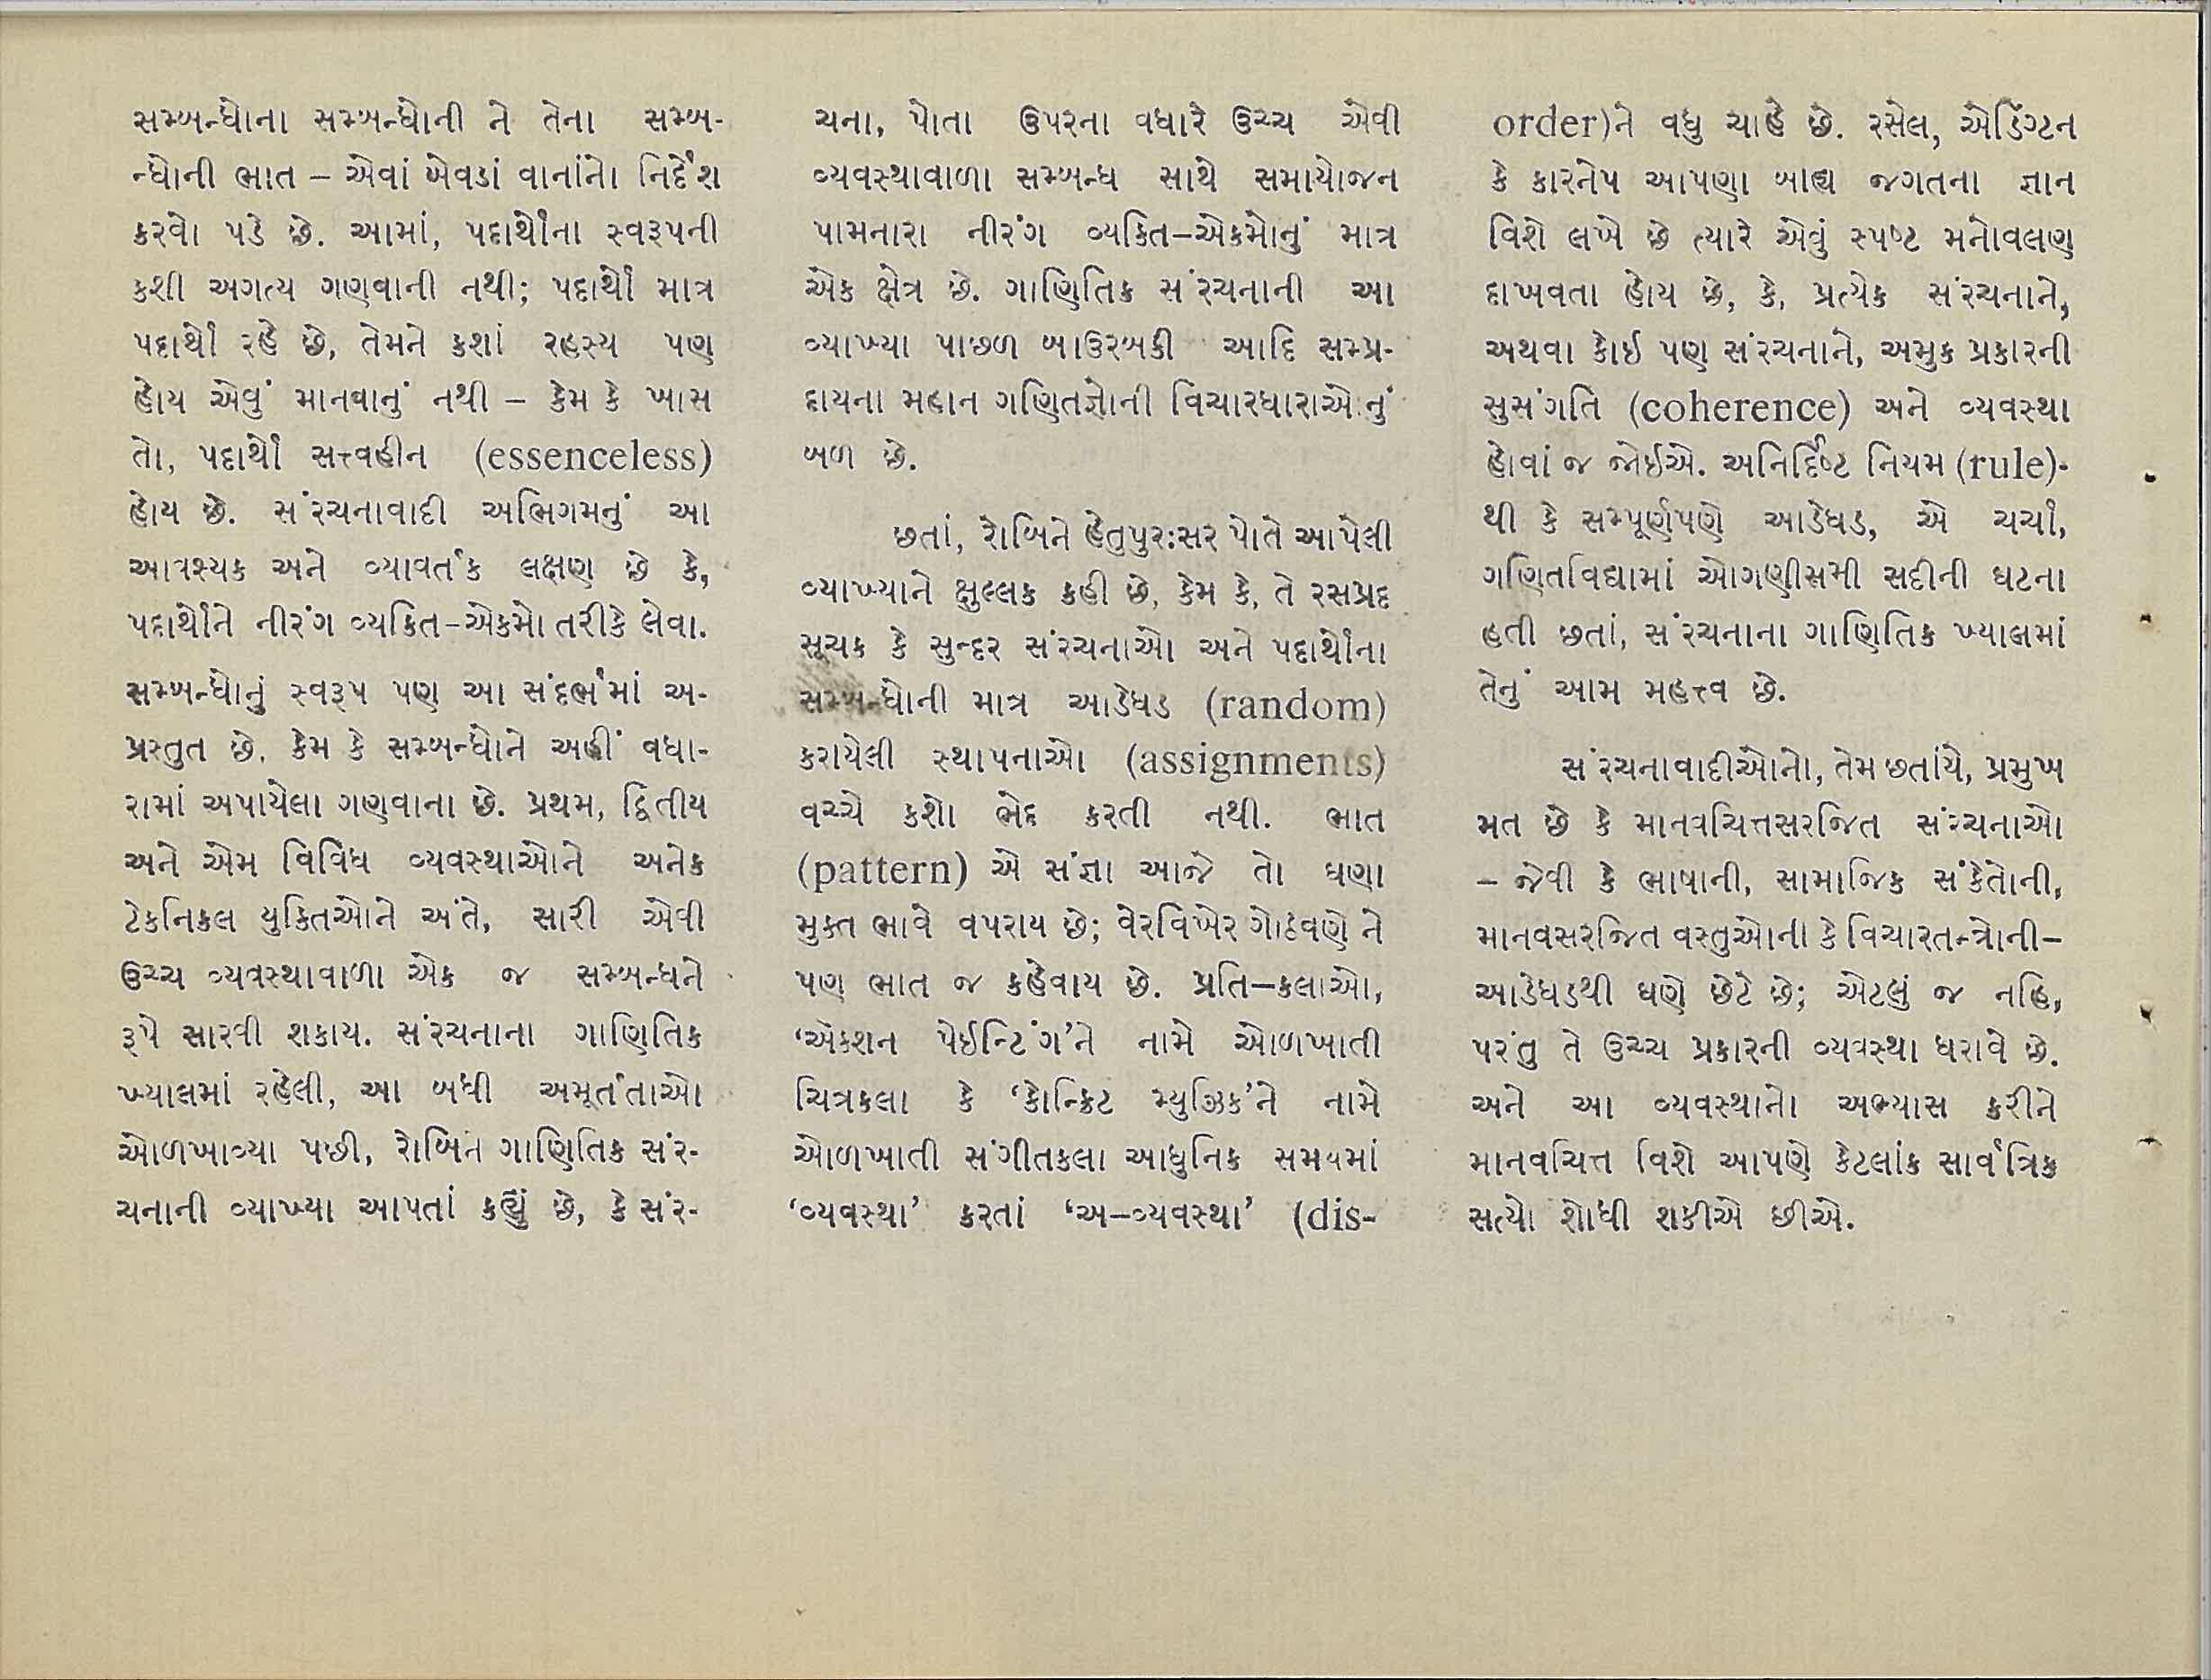 સમ્બન્ધોના સમ્બન્ધોની ને તેના સમ્બ-
ન્ધોની ભાત – એવાં બેવડાં વાનાંનો નિર્દેશ
કરવો પડે છે. આમાં, પદાર્થોના સ્વરૂપની
કશી અગત્ય ગણવાની નથી; પદાર્થો માત્ર
પદાર્થો રહે છે, તેમને કશાં રહસ્ય પણ
હોય એવું માનવાનું નથી – કેમ કે ખાસ
તો, પદાર્થો સત્ત્વહીન (essenceless)
હોય છે. સંરચનાવાદી અભિગમનું આ
આવશ્યક અને વ્યાવર્તક લક્ષણ છે કે,
પદાર્થોને નીરંગ વ્યકિત-એકમો તરીકે લેવા.
સમ્બન્ધોનું સ્વરૂપ પણ આ સંદર્ભમાં અ-
પ્રસ્તુત છે. કેમ કે સમ્બન્ધોને અહીં વધા-
રામાં અપાયેલા ગણવાના છે. પ્રથમ, દ્વિતીય
અને એમ વિવિધ વ્યવસ્થાઓને અનેક
ટેકનિકલ યુકિતઓને અંતે, સારી એવી
ઉચ્ચ વ્યવસ્થાવાળા એક જ સમ્બન્ધને
રૂપે સારવી શકાય. સંરચનાના ગાણિતિક
ખ્યાલમાં રહેલી, આ બધી અમૂર્તતાઓ
ઓળખાવ્યા પછી, રોબિન ગાણિતિક સંર-
ચનાની વ્યાખ્યા આપતાં કહ્યું છે, કે સંર-
ચના, પોતા ઉપરના વધારે ઉચ્ચ એવી
વ્યવસ્થાવાળા સમ્બન્ધ સાથે સમાયોજન
પામનારા નીરંગ વ્યકિત–એકમોનું માત્ર
એક ક્ષેત્ર છે. ગાણિતિક સંરચનાની આ
વ્યાખ્યા પાછળ બાઉરબકી આદિ સમ્પ્ર-
દાયના મહાન ગણિતજ્ઞોની વિચારધારાઓનું
બળ છે.
છતાં, રોબિને હેતુપુરઃસર પોતે આપેલી
વ્યાખ્યાને ક્ષુલ્લક કહી છે, કેમ કે, તે રસપ્રદ
સૂચક કે સુન્દર સંરચનાઓ અને પદાર્થોના
સમ્બન્ધોની માત્ર આડેધડ (random)
કરાયેલી સ્થાપનાઓ (assignments)
વચ્ચે કશો ભેદ કરતી નથી. ભાત
(pattern) એ સંજ્ઞા આજે તો ઘણા
મુક્ત ભાવે વપરાય છે; વેરવિખેર ગોઠવણે ને
પણ ભાત જ કહેવાય છે. પ્રતિ–કલાઓ,
‘એક્શન પેઈન્ટિંગ’ને નામે ઓળખાતી
ચિત્રકલા કે ‘કોન્ક્રિટ મ્યુઝિક’ને નામે
ઓળખાતી સંગીતકલા આધુનિક સમયમાં
‘વ્યવસ્થા’ કરતાં ‘અ–વ્યવસ્થા’ (dis-
order)ને વધુ ચાહે છે. રસેલ, એડિંગ્ટન
કે કારનેપ આપણા બાહ્ય જગતના જ્ઞાન
વિશે લખે છે ત્યારે એવું સ્પષ્ટ મનોવલણ
દાખવતા હોય છે, કે, પ્રત્યેક સંરચનાને,
અથવા કોઈ પણ સંરચનાને, અમુક પ્રકારની
સુસંગતિ (coherence) અને વ્યવસ્થા
હોવાં જ જોઈએ. અનિર્દિષ્ટ નિયમ (rule)-
થી કે સમ્પૂર્ણપણે આડેધડ, એ ચર્ચા,
ગણિતવિદ્યામાં ઓગણીસમી સદીની ઘટના
હતી છતાં, સંરચનાના ગાણિતિક ખ્યાલમાં
તેનું આમ મહત્ત્વ છે.
સંરચનાવાદીઓનો, તેમ છતાંયે, પ્રમુખ
મત છે કે માનવચિત્તસરજિત સંરચનાઓ
– જેવી કે ભાષાની, સામાજિક સંકેતોની,
માનવસરજિત વસ્તુઓની કે વિચારતન્ત્રોની–
આડેધડથી ઘણે છેટે છે; એટલું જ નહિ,
પરંતુ તે ઉચ્ચ પ્રકારની વ્યવસ્થા ધરાવે છે.
અને આ વ્યવસ્થાનો અભ્યાસ કરીને
માનવચિત્ત વિશે આપણે કેટલાંક સાર્વત્રિક
સત્યો શોધી શકીએ છીએ.